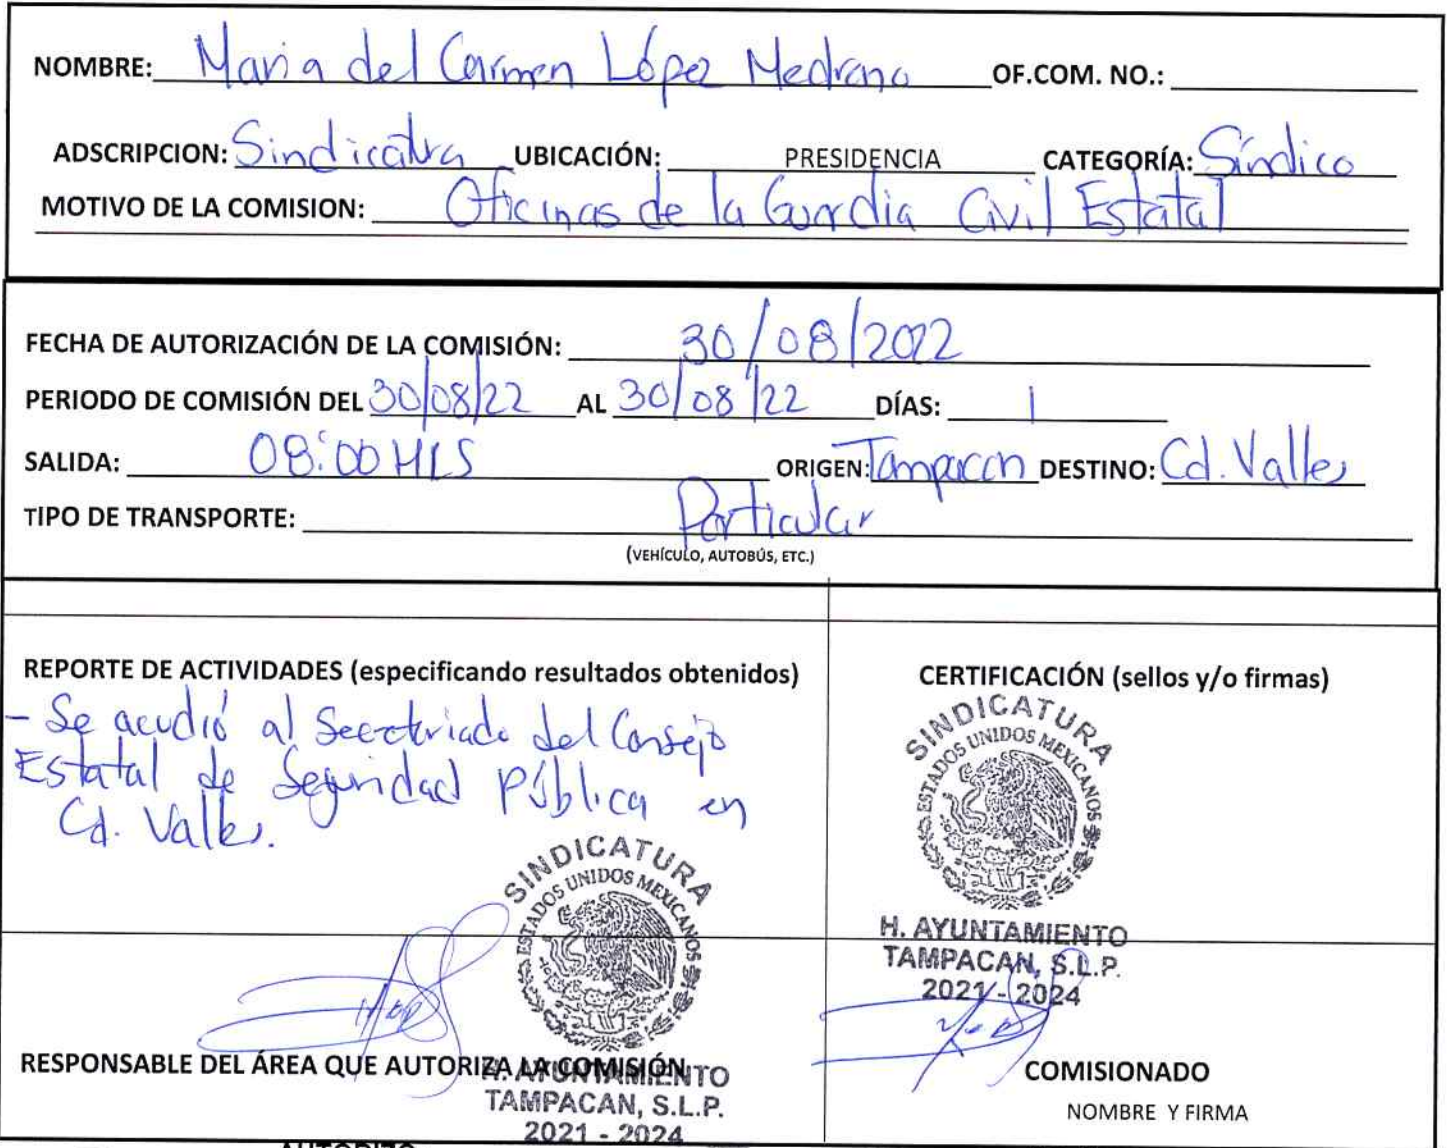 NOMBRE: Maria del Carmen López Medrano OF.COM. NO.:
ADSCRIPCION: Sindicatura UBICACIÓN: PRESIDENCIA CATEGORÍA: Síndico
MOTIVO DE LA COMISION: Oficinas de la Guardia Civil Estatal
FECHA DE AUTORIZACIÓN DE LA COMISIÓN: 30/08/2022
PERIODO DE COMISIÓN DEL 30/08/22 AL 30/08/22 DÍAS: 1
SALIDA: 08:00 Hrs ORIGEN: Tampacan DESTINO: Cd. Valles
TIPO DE TRANSPORTE: Particular
(VEHÍCULO, AUTOBÚS, ETC.)
REPORTE DE ACTIVIDADES (especificando resultados obtenidos)
- Se acudió al Secretariado del Consejo
Estatal de Seguridad Pública en
Cd. Valles.
SINDICATURA
ESTADOS UNIDOS MEXICANOS
H. AYUNTAMIENTO
TAMPACAN, S.L.P.
2021 - 2024
RESPONSABLE DEL ÁREA QUE AUTORIZA LA COMISIÓN
CERTIFICACIÓN (sellos y/o firmas)
SINDICATURA
ESTADOS UNIDOS MEXICANOS
H. AYUNTAMIENTO
TAMPACAN, S.L.P.
2021 - 2024
COMISIONADO
NOMBRE Y FIRMA